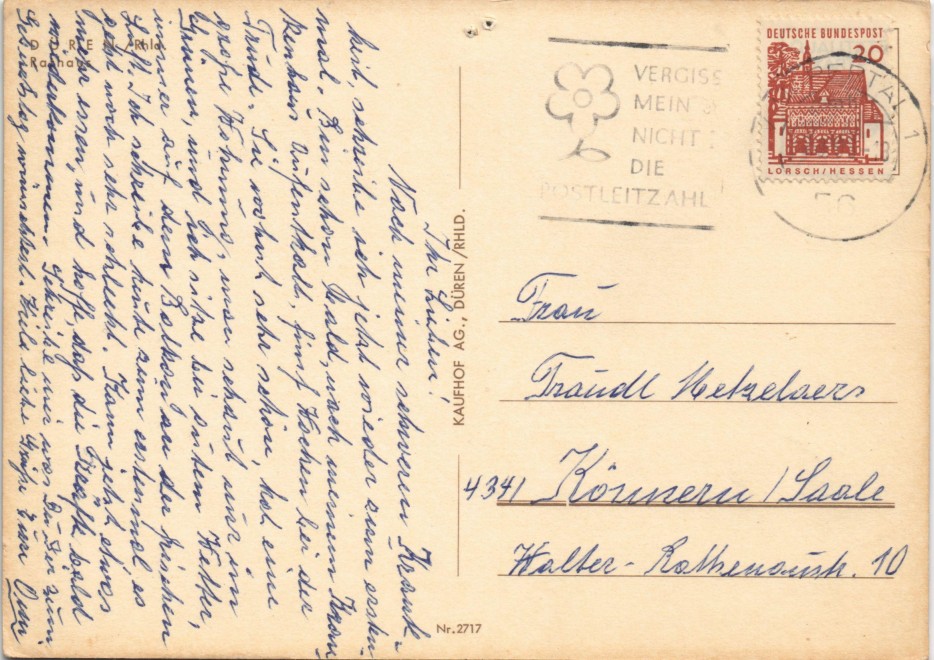 DÜREN/Rhld.
Rathaus
Ihr Lieben!
Nach meiner schweren Krank-
heit, schreibe ich jetzt wieder zum ersten
mal. Bin schon bald, nach meinem Kran-
kenhaus Aufenthalt, fünf Wochen bei der
Trude. Sie wohnt sehr schön, hat eine
große Wohnung, man schaut nur im
Grünen, und ich sitze bei gutem Wetter,
immer auf dem Balkon an der frischen
Luft. Ich schreibe heute zum erstenmal es
geht noch sehr schlecht. Kann jetzt etwas
mehr essen, und hoffe, daß die Kräfte bald
wiederkommen. Schreibe mir was Du Dir zum
Geburtstag wünschtest. Viele liebe Grüße Eure Oma
KAUFHOF AG., DÜREN/RHLD.
Nr. 2717
VERGISS
MEIN
NICHT
DIE
POSTLEITZAHL
DEUTSCHE BUNDESPOST
20
LORSCH/HESSEN
WUPPERTAL 1
56
Frau
Traudl Metzelaers
4341 Könnern /Saale
Walter-Rathenaustr. 10